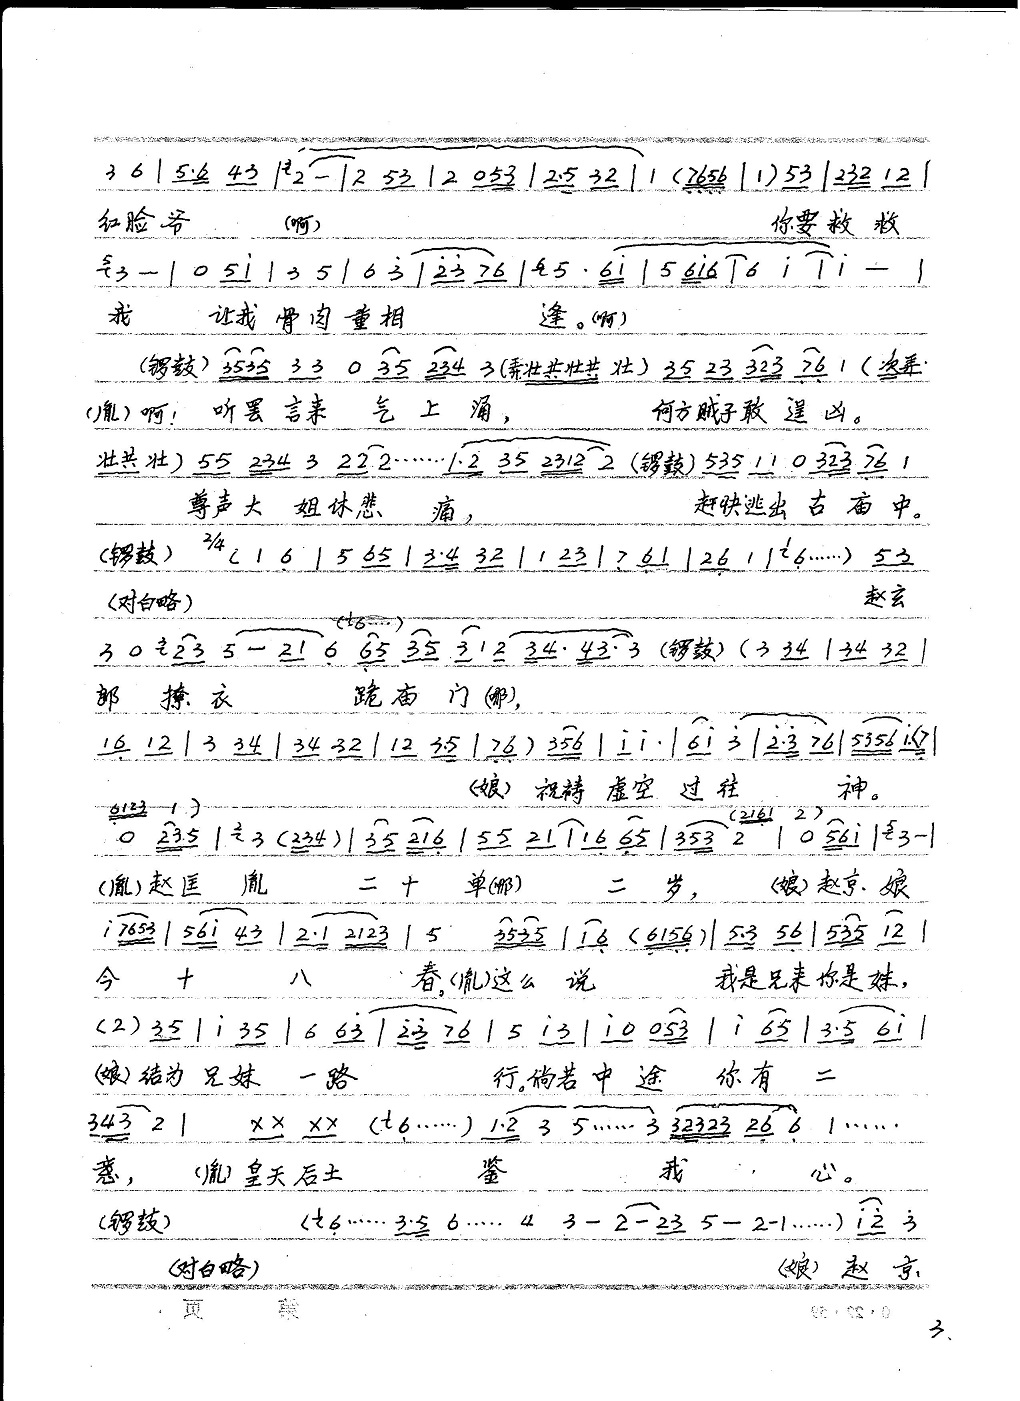 3 6 | 5·6 43 | 2 — | 2 53 | 2 053 | 2·5 32 | 1 (7656 | 1) 53 | 232 12 |
红脸爷 (啊) 你要救救
3 — | 0 51 | 3 5 | 6 3 | 23 76 | 5 · 61 | 5 616 | 6 i | i — |
我 让我骨肉重相 逢。(啊)
(锣鼓) 3535 33 0 35 234 3 (弄壮共壮共 壮) 35 23 323 76 1 (次弄·
(胤)啊! 听罢言来 气上涌, 何方贼子敢逞凶。
壮共 壮) 55 234 3 22 2 …… 1·2 35 2312 2 (锣鼓) 535 11 0 323 76 1
尊声大姐休悲 痛, 赶快逃出古庙中。
(锣鼓) 2/4 ( 1 6 | 5 65 | 3·4 32 | 1 23 | 7 61 | 26 1 | 6 ……) 53
(对白略) 赵玄
(6 ……)
3 0 23 5 — 21 6 65 35 3 12 34· 43· 3 (锣鼓) ( 3 34 | 34 32 |
郎 撩衣 跪庙门(哪),
16 12 | 3 34 | 34 32 | 12 3·5 | 76 ) 356 | i i · | 6i 3 | 2·3 76 | 5356 i·(7 |
(娘) 祝祷虚空过往 神。
6123 1 ) (2161 2 )
0 23·5 | 3 (234) | 35 216 | 55 21 | 16 65 | 353 2 | 0 56i | 3 — |
(胤)赵匡胤 二十单(哪) 二岁, (娘)赵京娘
i 7653 | 56i 43 | 2·1 2123 | 5 3535 | i6 (6156) | 5·3 56 | 535 12 |
今十八 春,(胤)这么说 我是兄来你是妹,
(2) 35 | i 35 | 6 63 | 23 76 | 5 i3 | i0 053 | i 65 | 3·5 6i |
(娘)结为兄妹一路 行。倘若中途你有二
343 2 | xx xx (6 ……) 1·2 3 5 …… 3 32323 26 6 1 ……
意, (胤)皇天后土 鉴 我 心。
(锣鼓) (6 …… 3·5 6 …… 4 3 — 2 — 23 5 — 2 - 1 ……) i2 3
(对白略) (娘) 赵京
第 页
3、